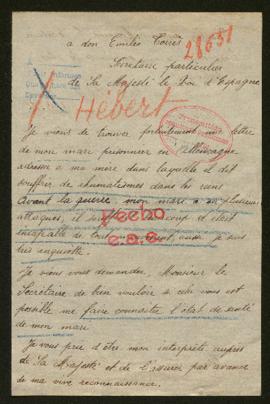 a don Emilio Torrès
28651
Secretaire particulier
de Sa Majesté le Roi d'Espagne
Hébert
Je viens de trouver fortuitement une lettre
de mon mari prisonnier en Allemagne
adressée à ma mère dans laquelle il dit
souffrir de rhumatismes dans les reins
Avant la guerre, mon mari a eu plusieurs
attaques, il
hecho
incapable de tout aussi je suis
très inquiète.
Je viens vous demander, Monsieur le
Secrétaire de bien vouloir si cela vous est
possible me faire connaître l'état de santé
de mon mari
Je vous prie d'être mon interprète auprès
de Sa Majesté et de l'assurer par avance
de ma vive reconnaissance.